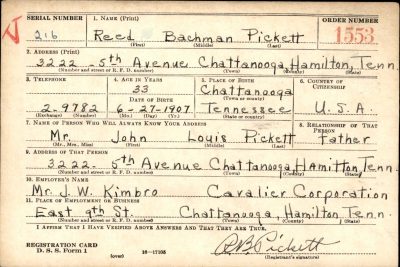 SERIAL NUMBER 1. NAME (Print) ORDER NUMBER
216 Reed Bachman Pickett 1553
(First) (Middle) (Last)
2. ADDRESS (Print)
3222 - 5th Avenue Chattanooga, Hamilton, Tenn.
(Number and street or R. F. D. number) (Town) (County) (State)
3. TELEPHONE 4. AGE IN YEARS 5. PLACE OF BIRTH 6. COUNTRY OF CITIZENSHIP
33 Chattanooga
DATE OF BIRTH (Town or county)
2-9782 6-27-1907 Tennessee U.S.A.
(Exchange) (Number) (Mo.) (Day) (Yr.) (State or country)
7. NAME OF PERSON WHO WILL ALWAYS KNOW YOUR ADDRESS 8. RELATIONSHIP OF THAT PERSON
Mr. John Louis Pickett Father
(Mr., Mrs., Miss) (First) (Middle) (Last)
9. ADDRESS OF THAT PERSON
3222 - 5th Avenue Chattanooga, Hamilton Tenn.
(Number and street or R. F. D. number) (Town) (County) (State)
10. EMPLOYER'S NAME
Mr. J.W. Kimbro Cavalier Corporation
11. PLACE OF EMPLOYMENT OR BUSINESS
East 9th St. Chattanooga, Hamilton Tenn.
(Number and street or R. F. D. number) (Town) (County) (State)
I AFFIRM THAT I HAVE VERIFIED ABOVE ANSWERS AND THAT THEY ARE TRUE.
REGISTRATION CARD
D. S. S. Form 1 (over) 16-17105 R B Pickett
(Registrant's signature)